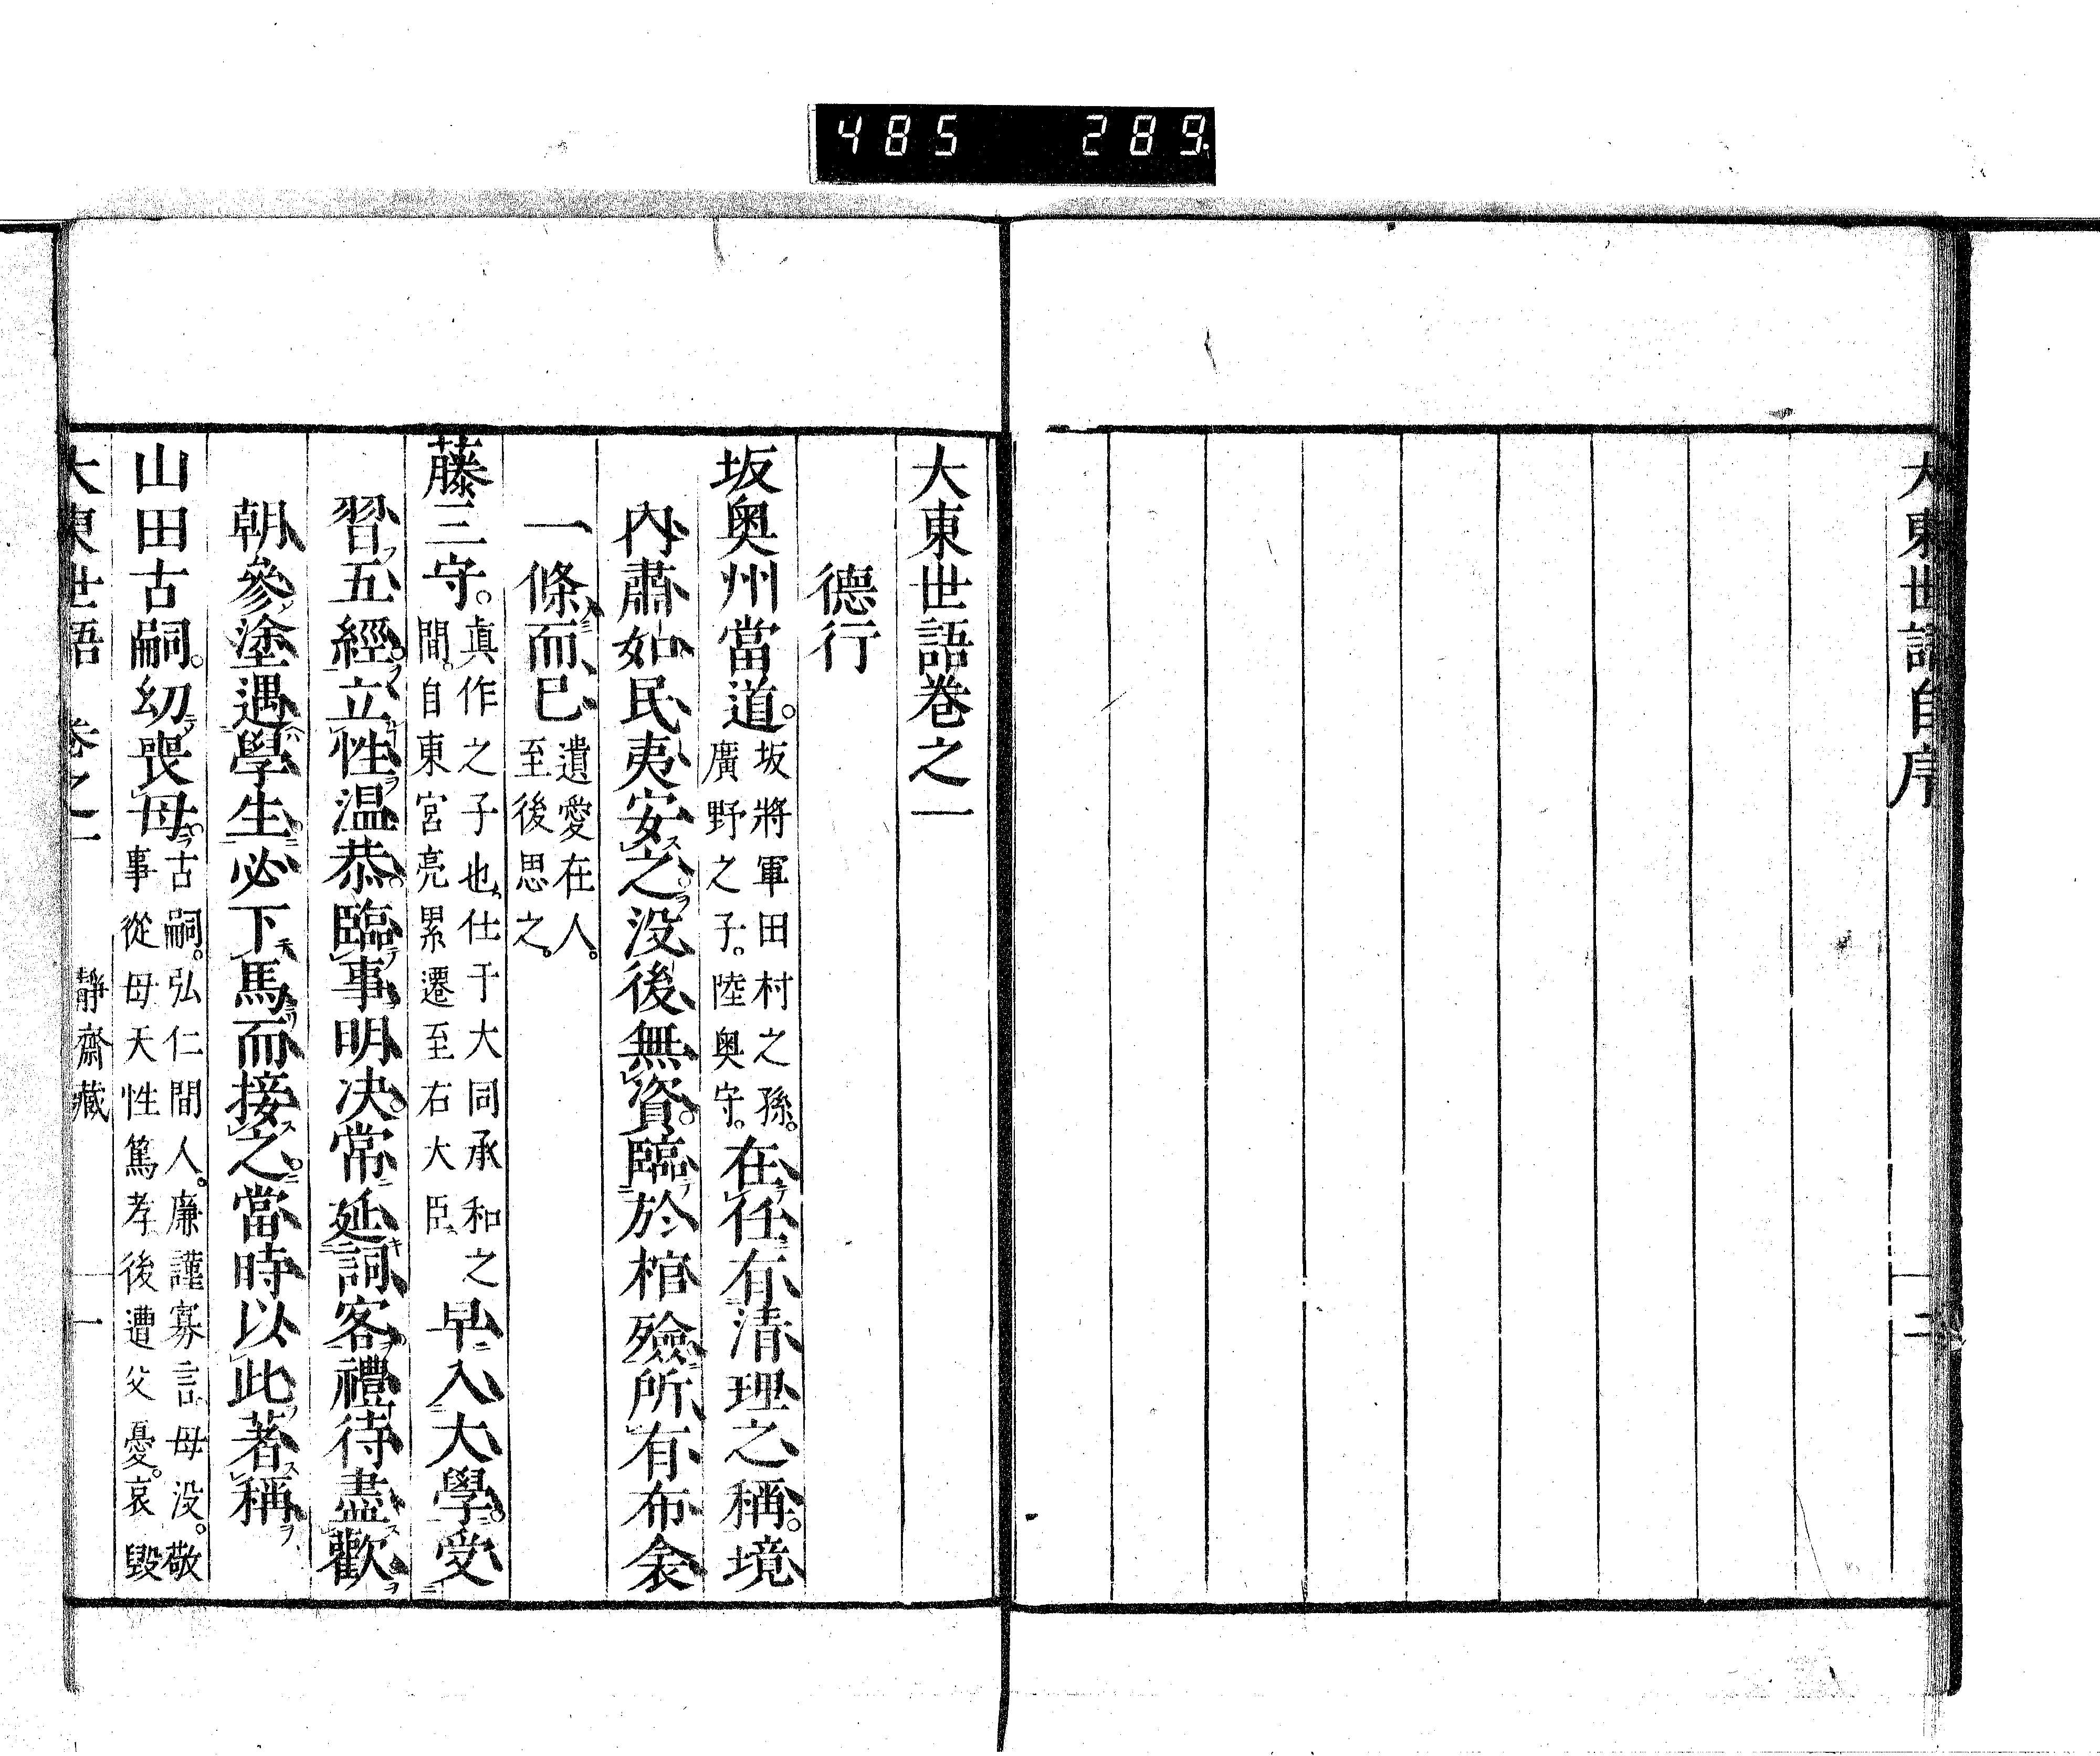 485 289.
大東世語自序
二
大東世語卷之一
德行
坂奧州當道。坂將軍田村之孫。廣野之子。陸奧守。在任有清理之稱。境
內肅如民夷安之。没後無資。臨於棺殮所有布衾
一條而已遺愛在人。至後思之。
藤三守。真作之子也、仕于大同承和之間。自東宮亮累遷至右大臣、早入大學。受
習五經。立性温恭。臨事明决。常延詞客禮待盡歡
朝參塗遇學生必下馬而接之。當時以此著稱
山田古嗣。幼喪母。古嗣。弘仁間人。廉謹寡言。母没。敬事從母天性篤孝後遭父憂。哀毀
大東世語 卷之一 靜齋藏 一